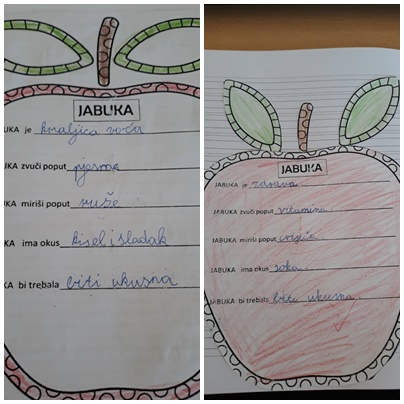 JABUKA
UKA je kraljica voća
KA zvuči poput pjesme
KA miriši poput ruže
KA ima okus kisel i sladak
KA bi trebala biti ukusna
JABUKA
JABUKA je zdrava
JABUKA zvuči poput vitamina
JABUKA miriši poput cvijeća
JABUKA ima okus soka.
JABUKA bi trebala biti ukusna.